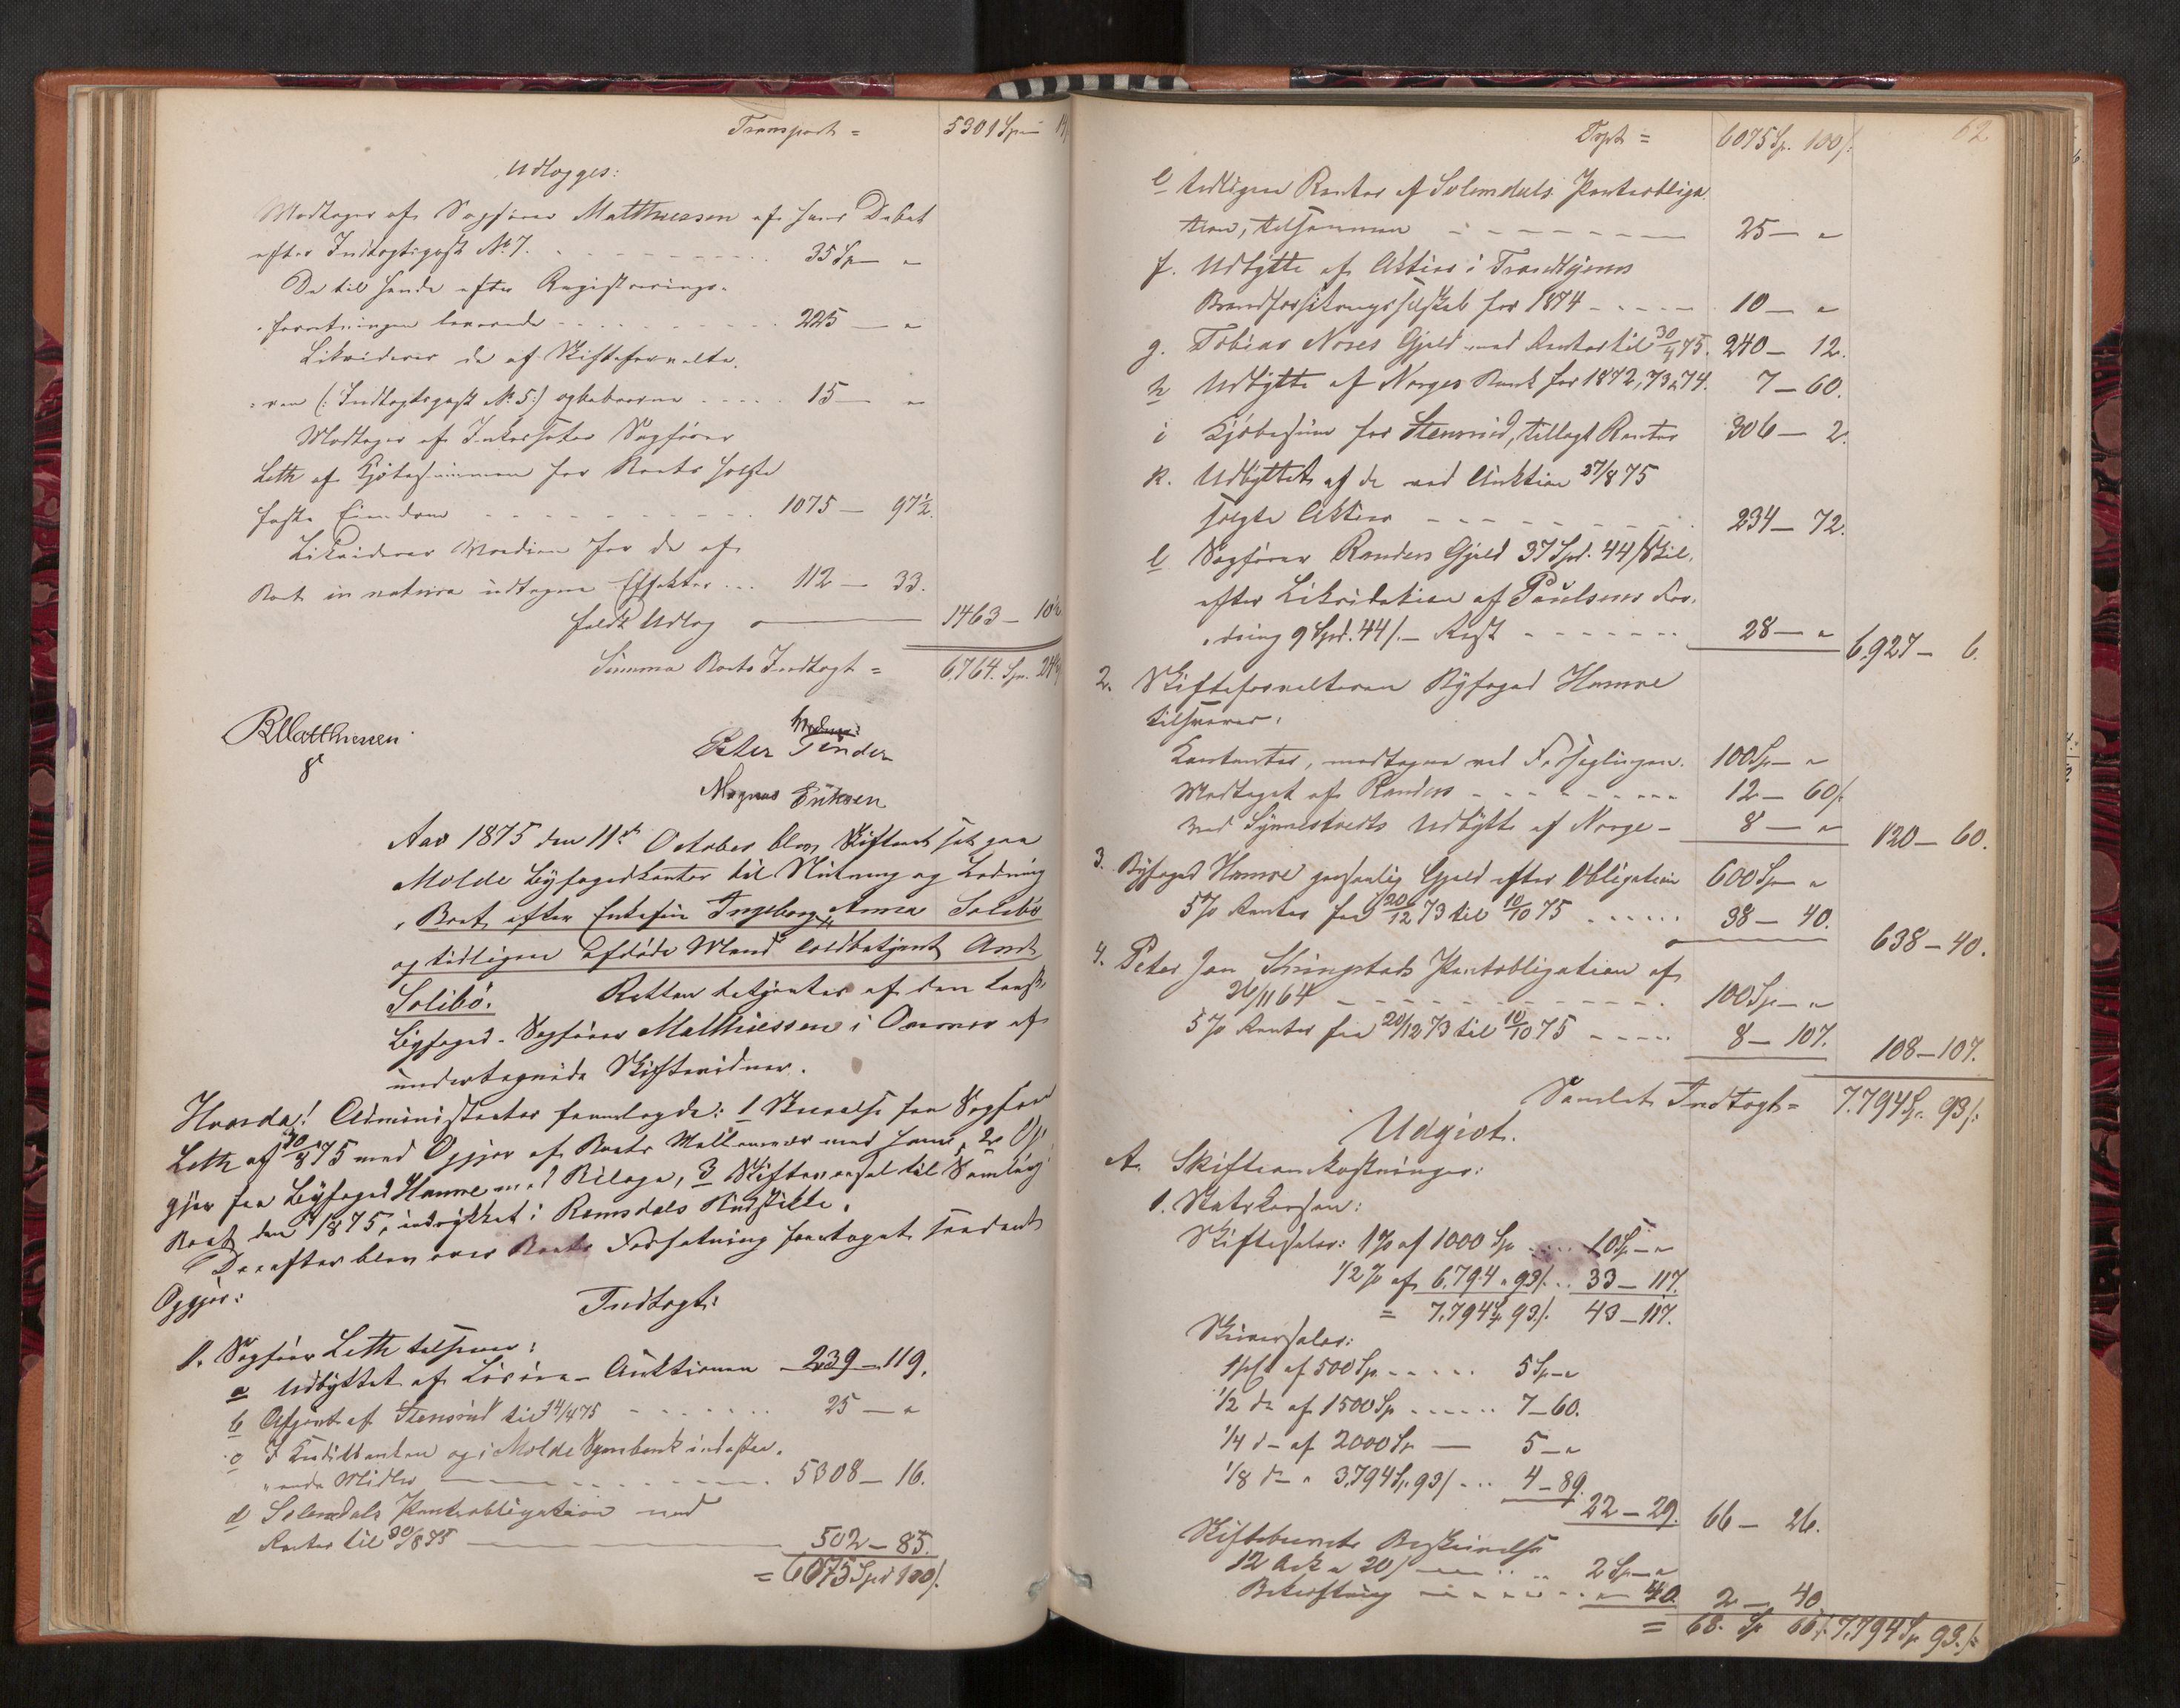 Transport = 5301 Sp
Udlægges:
Modtages af Sagfører Matthiessen af hans Debet
efter Indtægtspost No 7. 35 Sp — "
De til hende efter Registrerings-
forretningen leverede 225 — "
Likviderer de af Skifteforvalte-
ren (: Indtægtspost No 5:) 15 — "
Modtages af Inkassator Sagfører
Leth af Kjøbesummen for Boets solgte
faste Eiendom 1075 — 97½.
Likviderer Værdien for de af
Boet in natura udtagne Effekter 112 — 33.
fuldt Udlæg 1463 — 10½
Summa Boets Indtægt = 6,764. Sp. 24½
RMatthiessen
Peter Tønder
Magnus Eriksen
Aar 1875 den 11te October blev Skifteret sat paa
Molde Byfogedkontor til Slutning og Lodning
i Boet efter Enkefru Ingeborg Anna Solibø
og tidligere afdøde Mand Toldbetjent And.
Solibø. Retten betjentes af den const.
Byfoged - Sagfører Matthiessen i Overvær af
undertegnede Skiftevidner.
Hvorda! Administrator fremlagde: 1 Skrivelse fra Sagfører
Leth af 30/8 75 med Opgjør af Boets Mellemvær med ham, 2 Op
gjør fra Byfoged Hamre med Bilage, 3 Skiftevarsel til Samling
Boet den /8 75, indrykket i Romsdals Budstikke.
Derefter blev over Boets Forfatning foretaget saadant
Opgjør:
Indtægt:
1. Sagfører Leth tilsvarer:
a Udbyttet af Løsøre-Auktionen 239 — 119.
b Afgivt af Stensrud til 14/4 75 25 — "
c I Creditbanken og i Molde Sparebank indestaa-
ende Midler 5308 — 16.
d Solemdals Panteobligation med
Renter til 30/8 75 502 — 85.
= 6075 Spd 100/.
62
Trpt = 6075 Sp. 100/.
e tidligere Renter af Solemdals Panteobliga-
tion, tilsammen 25 — "
f. Udbytte af Aktier i Trondhjems
Brandforsikringsselskab for 1874 10 — "
g. Tobias Noses Gjeld med Renter til 30/4 75. 240 — 12.
h Udbytte af Norges Bank for 1872, 73, 74. 7 — 60.
i Kjøbesum for Stensrud, tillagt Renter 306 — 2.
k. Udbyttet af de ved Auktion 27/8 75
solgte Aktier 234 — 72.
l Sagfører Randers Gjeld 37 Spd. 44/ Skil.
efter Likvidation af Paulsens For-
dring 9 Spd. 44/. — Rest 28 — " 6,927 — 6.
2. Skifteforvalteren Byfoged Hamre
tilsvarer:
Kontanter, modtagne ved Forseglingen. 100 Sp — "
Modtaget af Randers 12 — 60/.
ved Synnestvedts Udbytte af Norge 8 — " 120 — 60.
3. Byfoged Hamre personlig Gjeld efter Obligation 600 Sp — "
5% Renter fra 20/12 73 til 10/10 75 38 — 40. 638 — 40.
4. Peter Jon Panteobligation af
26/11 64 100 Sp — "
5% Renter fra 20/12 73 til 10/10 75 8 — 107. 108 — 107.
Samlet Indtægt = 7.794 Sp. 93/.
Udgivt.
A. Skifteomkostninger:
1. Statskassen:
Skiftesalær: 1% af 1000 Sp 10 Sp — "
1/2 % af 6.794 " 93/. 33 — 117.
= 7.794 Sp 93/. 43 — 117.
Skriversalær:
1 pCt af 500 Sp 5 Sp — "
1/2 do af 1500 Sp 7 — 60.
1/4 do af 2000 Sp — 5 — "
1/8 do " 3,794 Sp. 93/ 4 — 89.
22 — 29. 66 — 26.
Skiftebrevets Beskrivelse
12 Ark a 20/ 2 Sp — "
Bekræftning " — 40. 2 — 40
= 68. Sp 66/. 7.794 Sp 93./.